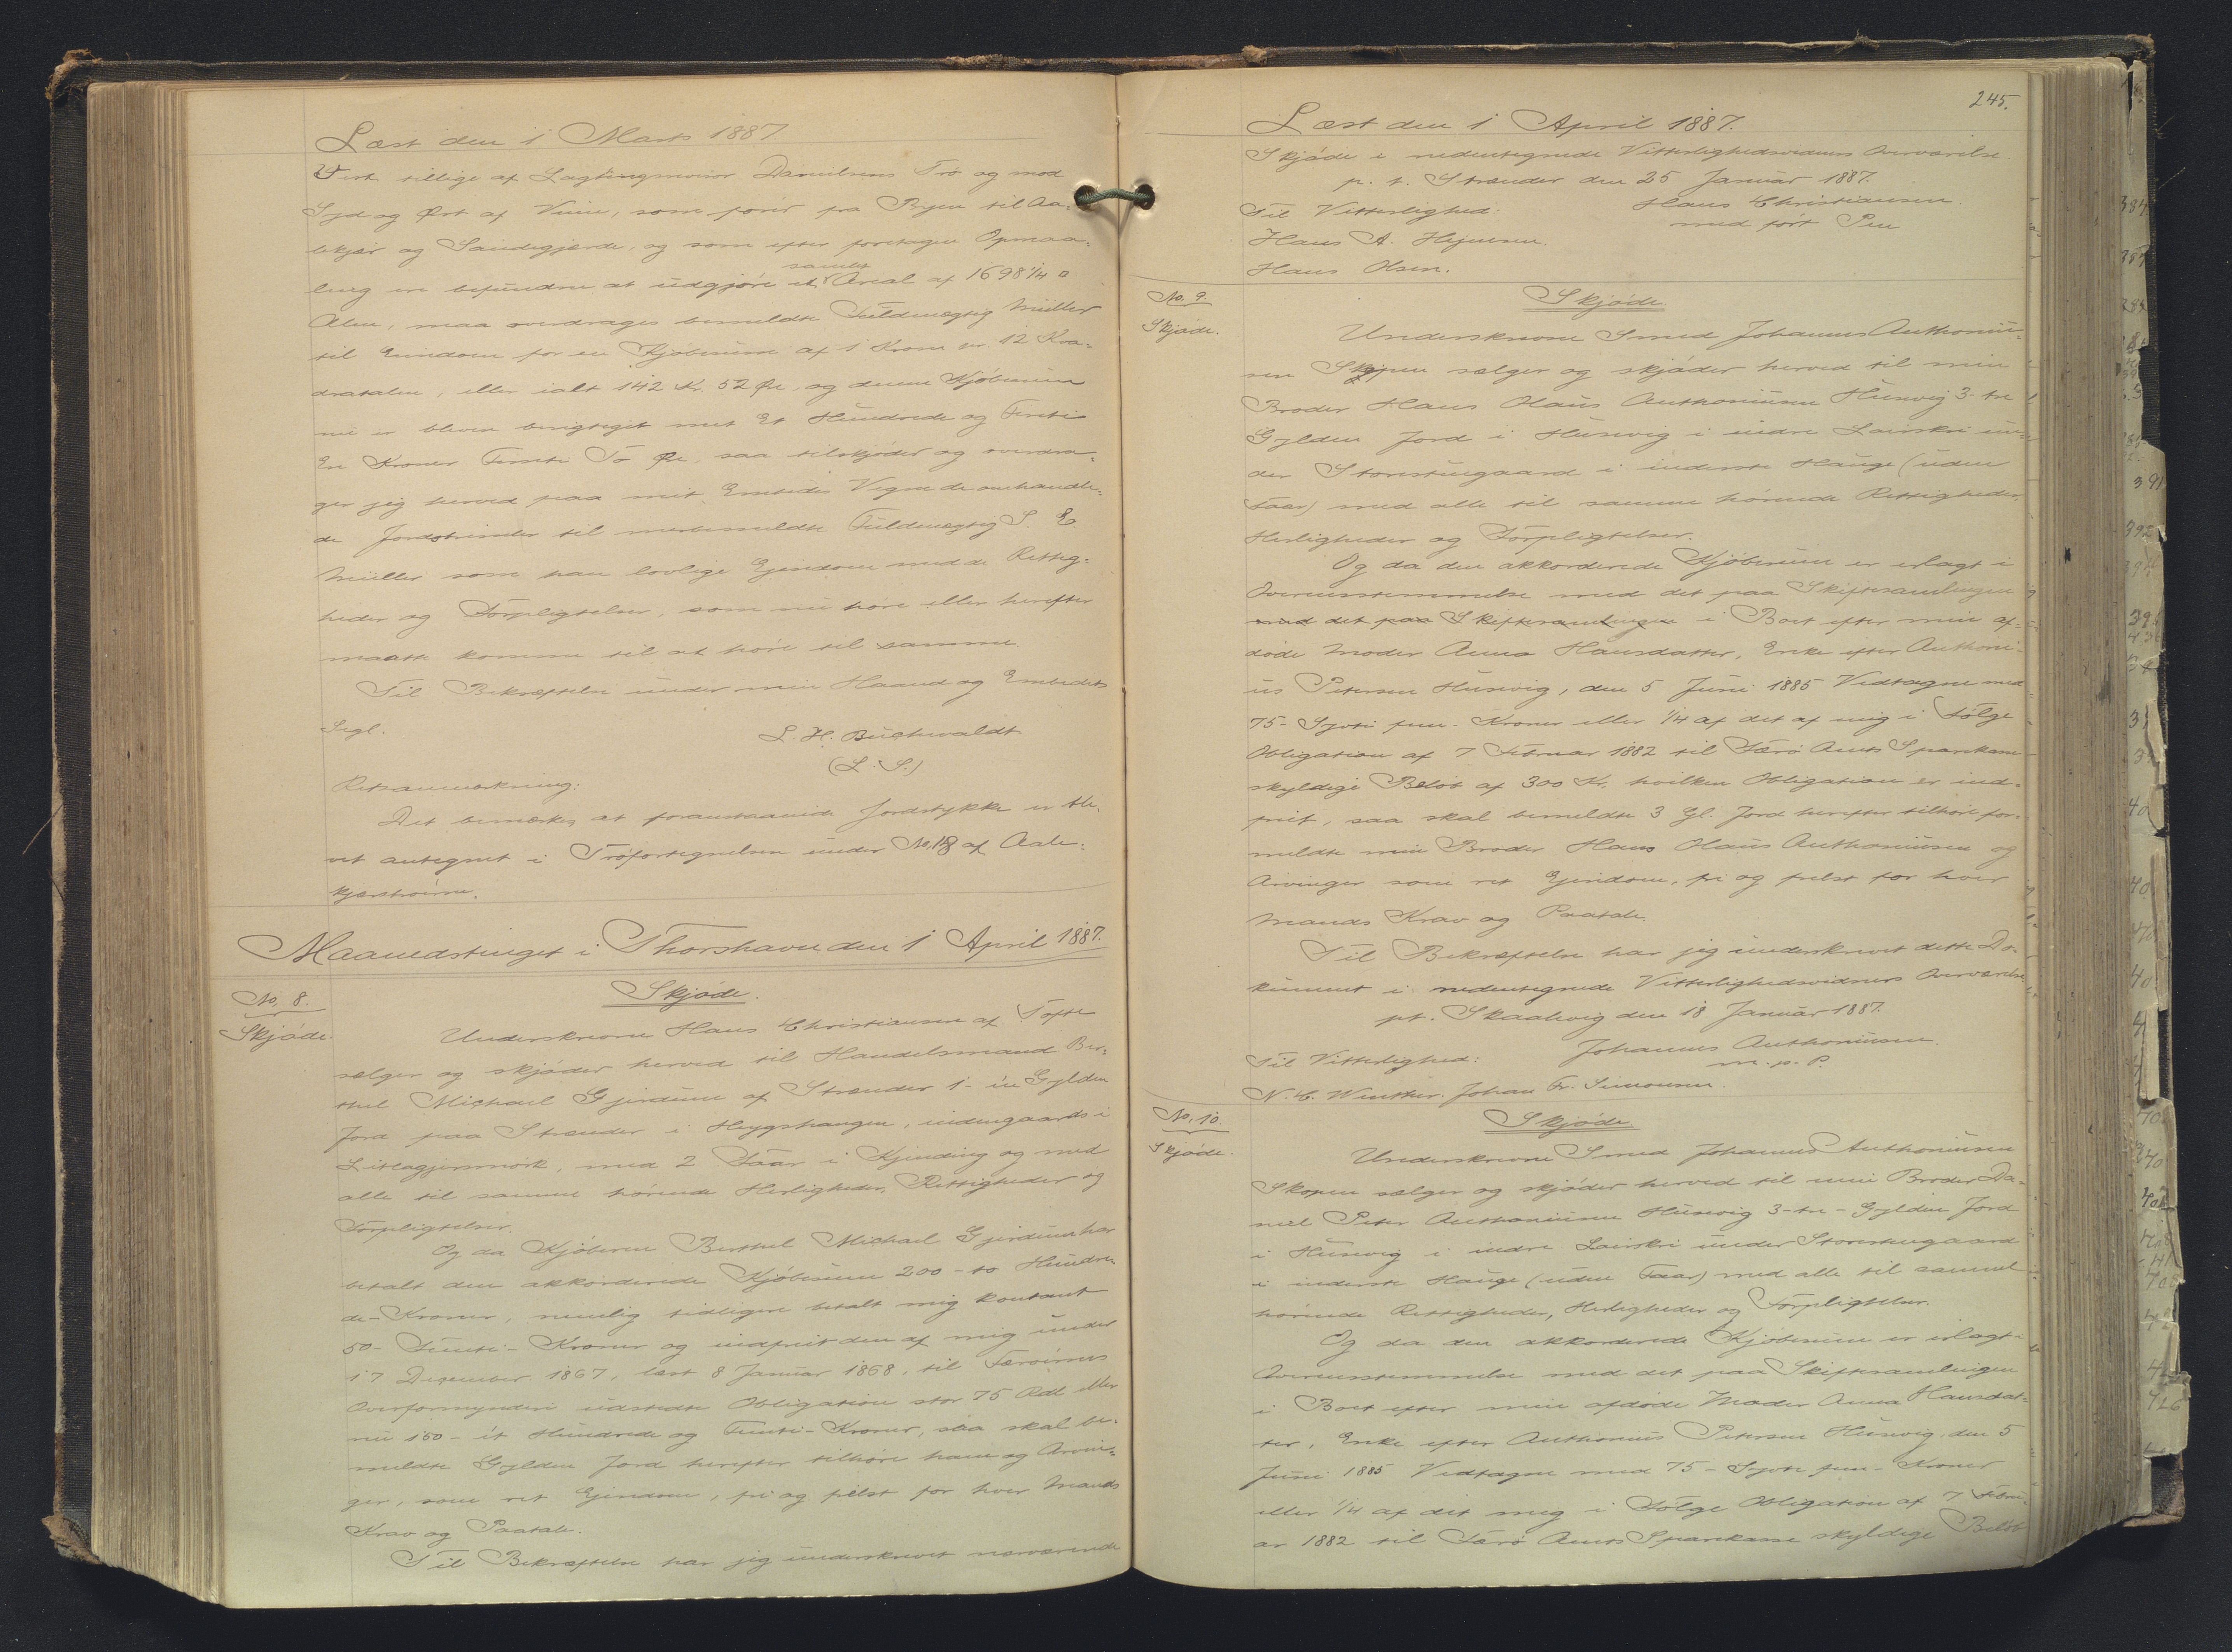 Læst den 1 Marts 1887
Vest tillige af Lagtingsrevisor Danielsens Trø og mod
Syd og Øst af Veien, som fører fra Byen til Aa-
lekjær og Sandegjærde, og som efter foretagen Opmaa-
samlet
ling ere befundne at udgjøre et Areal af 1698 1/4 □
Alen, maa overdrages bemeldte Fuldmægtig Müller
til Eiendom for en Kjøbesum af 1 Krone pr. 12 Kva-
dratalen, eller ialt 142 Kr. 52 Øre, og denne Kjøbesum
nu er bleven berigtiget met Et Hundrede og Firti
En Kroner Femti To Øre, saa tilskjøder og overdra-
ger jeg herved paa mit Embedes Vegne de omhandle-
de Jordstrimler til merbemeldte Fuldmægtig S. E.
Müller som han lovlige Ejendom med de Rettig-
heder og Forpligtelser, som nu høre eller herefter
maatte komme til at høre til samme.
Til Bekræftelse under min Haand og Embedets
Segl.
L. H. Buchwaldt
(L. S.)
Retsanmærkning:
Det bemærkes at foranstaaende Jordstykke er ble-
vet antegnet i Trøfortegnelsen under No. 118 af Aale-
kjærstrøerne.
Maanedstinget i Thorshavn den 1 April 1887.
No. 8.
Skjøde.
Skjøde.
Underskrevne Hans Christiansen af Tofte
sælger og skjøder herved til Handelsmand Ber-
thel Michael Gjerdum af Strænder 1- én Gylden
Jord paa Strænder i Heygshaugen, indengaards i
Litlagjersmørk, med 2 Faar i Kjending og med
alle til samme hørende Herligheder, Rettigheder og
Forpligtelser.
Og da Kjøberen Berthel Michael Gjerdum har
betalt den akkorderede Kjøbesum 200 - to Hundre-
de - Kroner, nemlig tidligere betalt mig kontant
50 - Femti - Kroner og indfriet den af mig under
17 December 1867, læst 8 Januar 1868, til Færøernes
Overformynderi udstedte Obligation stor 75 Rdl. eller
nu 150 - ét Hundrede og Femti - Kroner, saa skal be-
meldte Gylden Jord herefter tilhøre ham og Arvin-
ger, som ret Ejendom, fri og frelst for hver Mands
Krav og Paatale.
Til Bekræftelse har jeg underskrevet nærværende
245.
Læst den 1 April 1887.
Skjøde i nedentegnede Vitterlighedsvidners Overværelse.
p. t. Strænder den 25 Januar 1887.
Hans Christiansen.
med ført Pen
Til Vitterlighed:
Hans A. Hejnesen.
Hans Olsen.
No. 9.
Skjøde.
Skjøde.
Underskrevne Smed Johannes Anthoniu-
sen Skopen sælger og skjøder herved til min
Broder Hans Olaus Anthoniusen Husevig 3- tre
Gylden Jord i Husevig i indre Lairskri un-
der Storestuegaard i inderste Hauge (uden
Faar) med alle til samme hørende Rettigheder,
Herligheder og Forpligtelser.
Og da den akkorderede Kjøbesum er erlagt i
Overensstemmelse med det paa Skiftesamlingen
med det paa Skiftesamlingen i Boet efter min af-
døde Moder Anna Hansdatter, Enke efter Anthoni-
us Petersen Husevig, den 5 Juni 1885 Vedtagne med
75 - Syvti fem - Kroner eller 1/4 af det af mig i Følge
Obligation af 7 Februar 1882 til Færø Amts Sparekasse
skyldige Beløb af 300 Kr. hvilken Obligation er ind-
friet, saa skal bemeldte 3 Gl. Jord herefter tilhøre for-
meldte min Broder Hans Olaus Anthoniusen og
Arvinger som ret Ejendom, fri og frelst for hver
Mands Krav og Paatale.
Til Bekræftelse har jeg underskrevet dette Do-
kument i nedentegnede Vitterlighedsvidners Overværelse
pt. Skaalevig den 18 Januar 1887.
Johannes Anthoniusen.
m. f. P.
Til Vitterlighed:
N. C. Winther. Johan Fr. Simonsen.
No. 10.
Skjøde.
Skjøde.
Underskrevne Smed Johannes Anthoniusen
Skopen sælger og skjøder herved til min Broder Da-
niel Peter Anthoniusen Husevig 3 - tre - Gylden Jord
i Husevig i indre Lairskri under Storestuegaard
i inderste Hauge (uden Faar) med alle til samme
hørende Rettigheder, Herligheder og Forpligtelser.
Og da den akkorderede Kjøbesum er erlagt i
Overensstemmelse med det paa Skiftesamlingen
i Boet efter min afdøde Moder Anna Hansdat-
ter, Enke efter Anthonius Petersen Husevig, den 5
Juni 1885 Vedtagne med 75 - Syvti fem - Kroner
eller 1/4 af det mig i Følge Obligation af 7 Febru-
ar 1882 til Færø Amts Sparekasse skyldige Beløb